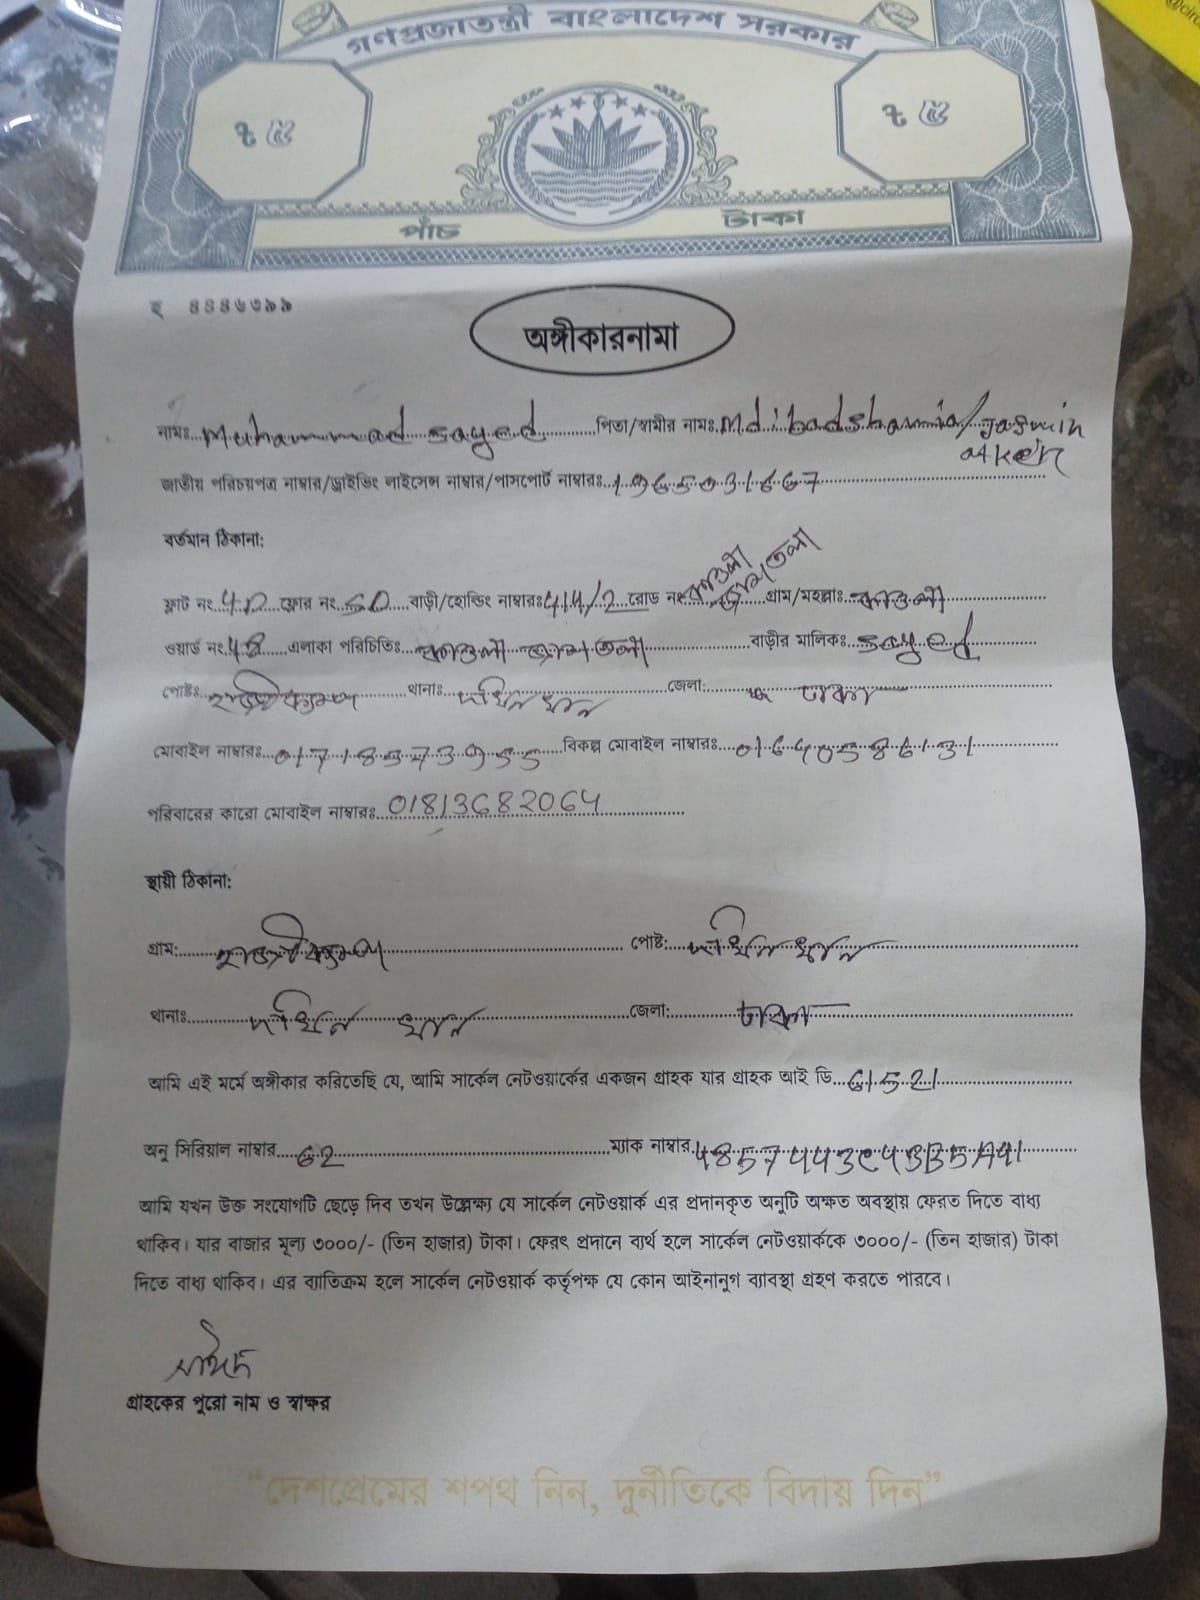 গণপ্রজাতন্ত্রী বাংলাদেশ সরকার
৳ ৫ ৳ ৫
পাঁচ টাকা
হ ৪৪৪৬৩৯৯
অঙ্গীকারনামা
নামঃ Muhammad sayed পিতা/স্বামীর নামঃ Md. badshamia/Jasmin
akter
জাতীয় পরিচয়পত্র নাম্বার/ড্রাইভিং লাইসেন্স নাম্বার/পাসপোর্ট নাম্বারঃ
বর্তমান ঠিকানা:
ফ্লাট নং 4D ফ্লোর নং বাড়ী/হোল্ডিং নাম্বারঃ 414/2 রোড নং কাওলা জামতলা গ্রাম/মহল্লাঃ কাওলা
ওয়ার্ড নং এলাকা পরিচিতিঃ কাওলা জামতলা বাড়ীর মালিকঃ sayed
পোষ্টঃ থানাঃ দক্ষিনখান জেলা: ঢাকা
মোবাইল নাম্বারঃ বিকল্প মোবাইল নাম্বারঃ
পরিবারের কারো মোবাইল নাম্বারঃ 01813682064
স্থায়ী ঠিকানা:
গ্রাম: পোষ্ট: দক্ষিনখান
থানাঃ দক্ষিন খান জেলা: ঢাকা
আমি এই মর্মে অঙ্গীকার করিতেছি যে, আমি সার্কেল নেটওয়ার্কের একজন গ্রাহক যার গ্রাহক আই ডি 61521
অনু সিরিয়াল নাম্বার 62 ম্যাক নাম্বার
আমি যখন উক্ত সংযোগটি ছেড়ে দিব তখন উল্লেক্ষ্য যে সার্কেল নেটওয়ার্ক এর প্রদানকৃত অনুটি অক্ষত অবস্থায় ফেরত দিতে বাধ্য
থাকিব। যার বাজার মূল্য ৩০০০/- (তিন হাজার) টাকা। ফেরৎ প্রদানে ব্যর্থ হলে সার্কেল নেটওয়ার্ককে ৩০০০/- (তিন হাজার) টাকা
দিতে বাধ্য থাকিব। এর ব্যাতিক্রম হলে সার্কেল নেটওয়ার্ক কর্তৃপক্ষ যে কোন আইনানুগ ব্যাবস্থা গ্রহণ করতে পারবে।
সাইদ
গ্রাহকের পুরো নাম ও স্বাক্ষর
“দেশপ্রেমের শপথ নিন, দুর্নীতিকে বিদায় দিন”